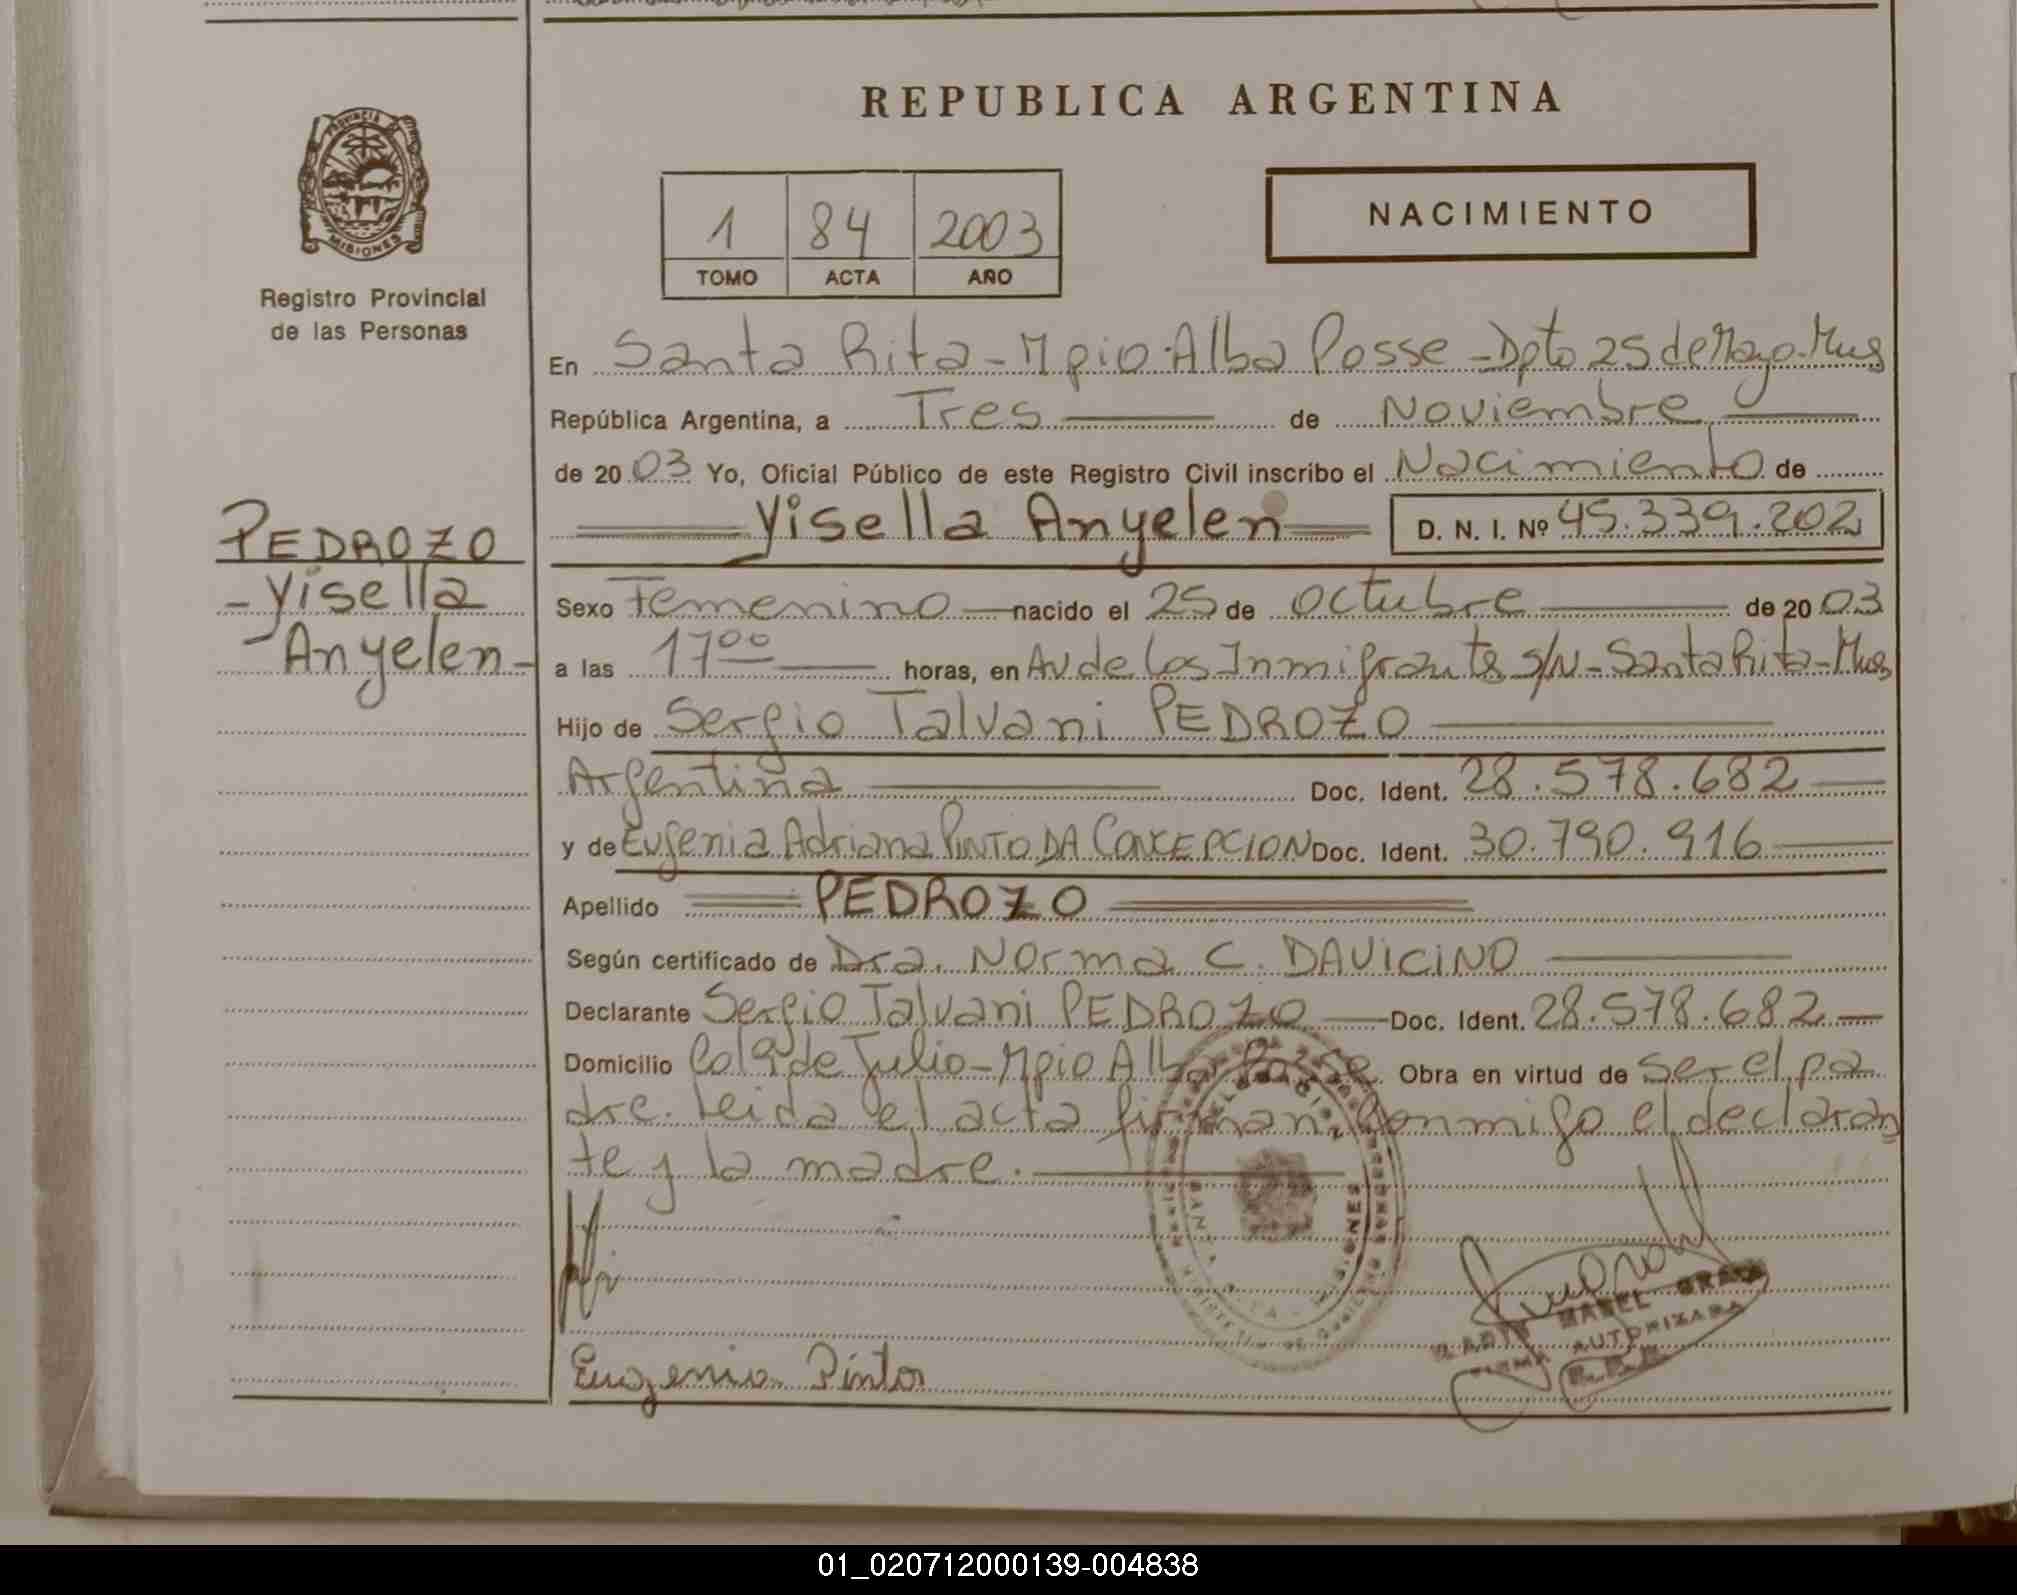 REPUBLICA ARGENTINA
PROVINCIA DE MISIONES
Registro Provincial
de las Personas
1 84 2003
TOMO ACTA AÑO
NACIMIENTO
En Santa Rita - Mpio. Alba Posse - Dpto 25 de Mayo - Mnes
República Argentina, a Tres de Noviembre
de 2003 Yo, Oficial Público de este Registro Civil inscribo el Nacimiento de
Yisella Anyelen D. N. I. Nº 45.339.202
PEDROZO
- Yisella
- Anyelen -
Sexo Femenino nacido el 25 de octubre de 2003
a las 17 00 horas, en Av de Los Inmigrantes s/N - Santa Rita - Mnes
Hijo de Sergio Talvani PEDROZO
Argentina Doc. Ident. 28.578.682
y de Eugenia Adriana PINTO DA CONCEPCION Doc. Ident. 30.790.916
Apellido PEDROZO
Según certificado de Dra. Norma C. DAVICINO
Declarante Sergio Talvani PEDROZO Doc. Ident. 28.578.682
Domicilio Col 9 de Julio - Mpio Alba Posse Obra en virtud de ser el pa
dre. Leida el acta firman conmigo el declaran
te y la madre.
SANTA RITA - MISIONES
MABEL
FIRMA AUTORIZADA
Eugenia Pinto
01_020712000139-004838